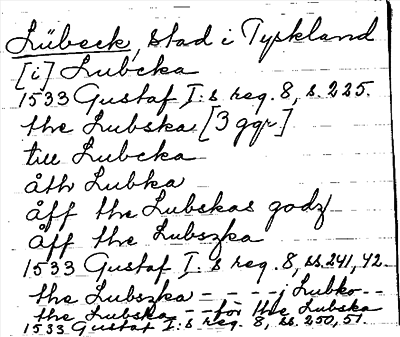 Lübeck, stad i Tyskland
[i] Lubcka
1533 Gustaf I:s reg. 8, s. 225.
the Lubska [3 ggr]
till Lubcka
åth Lubka
åff the Lubskas godz
åff the Lubszka
1533 Gustaf I:s reg. 8, ss. 241, 42.
the Lubszka - - - - j Lubko - -
the Lubska - - för the Lubska
1533 Gustaf I:s reg. 8, ss. 250, 51.